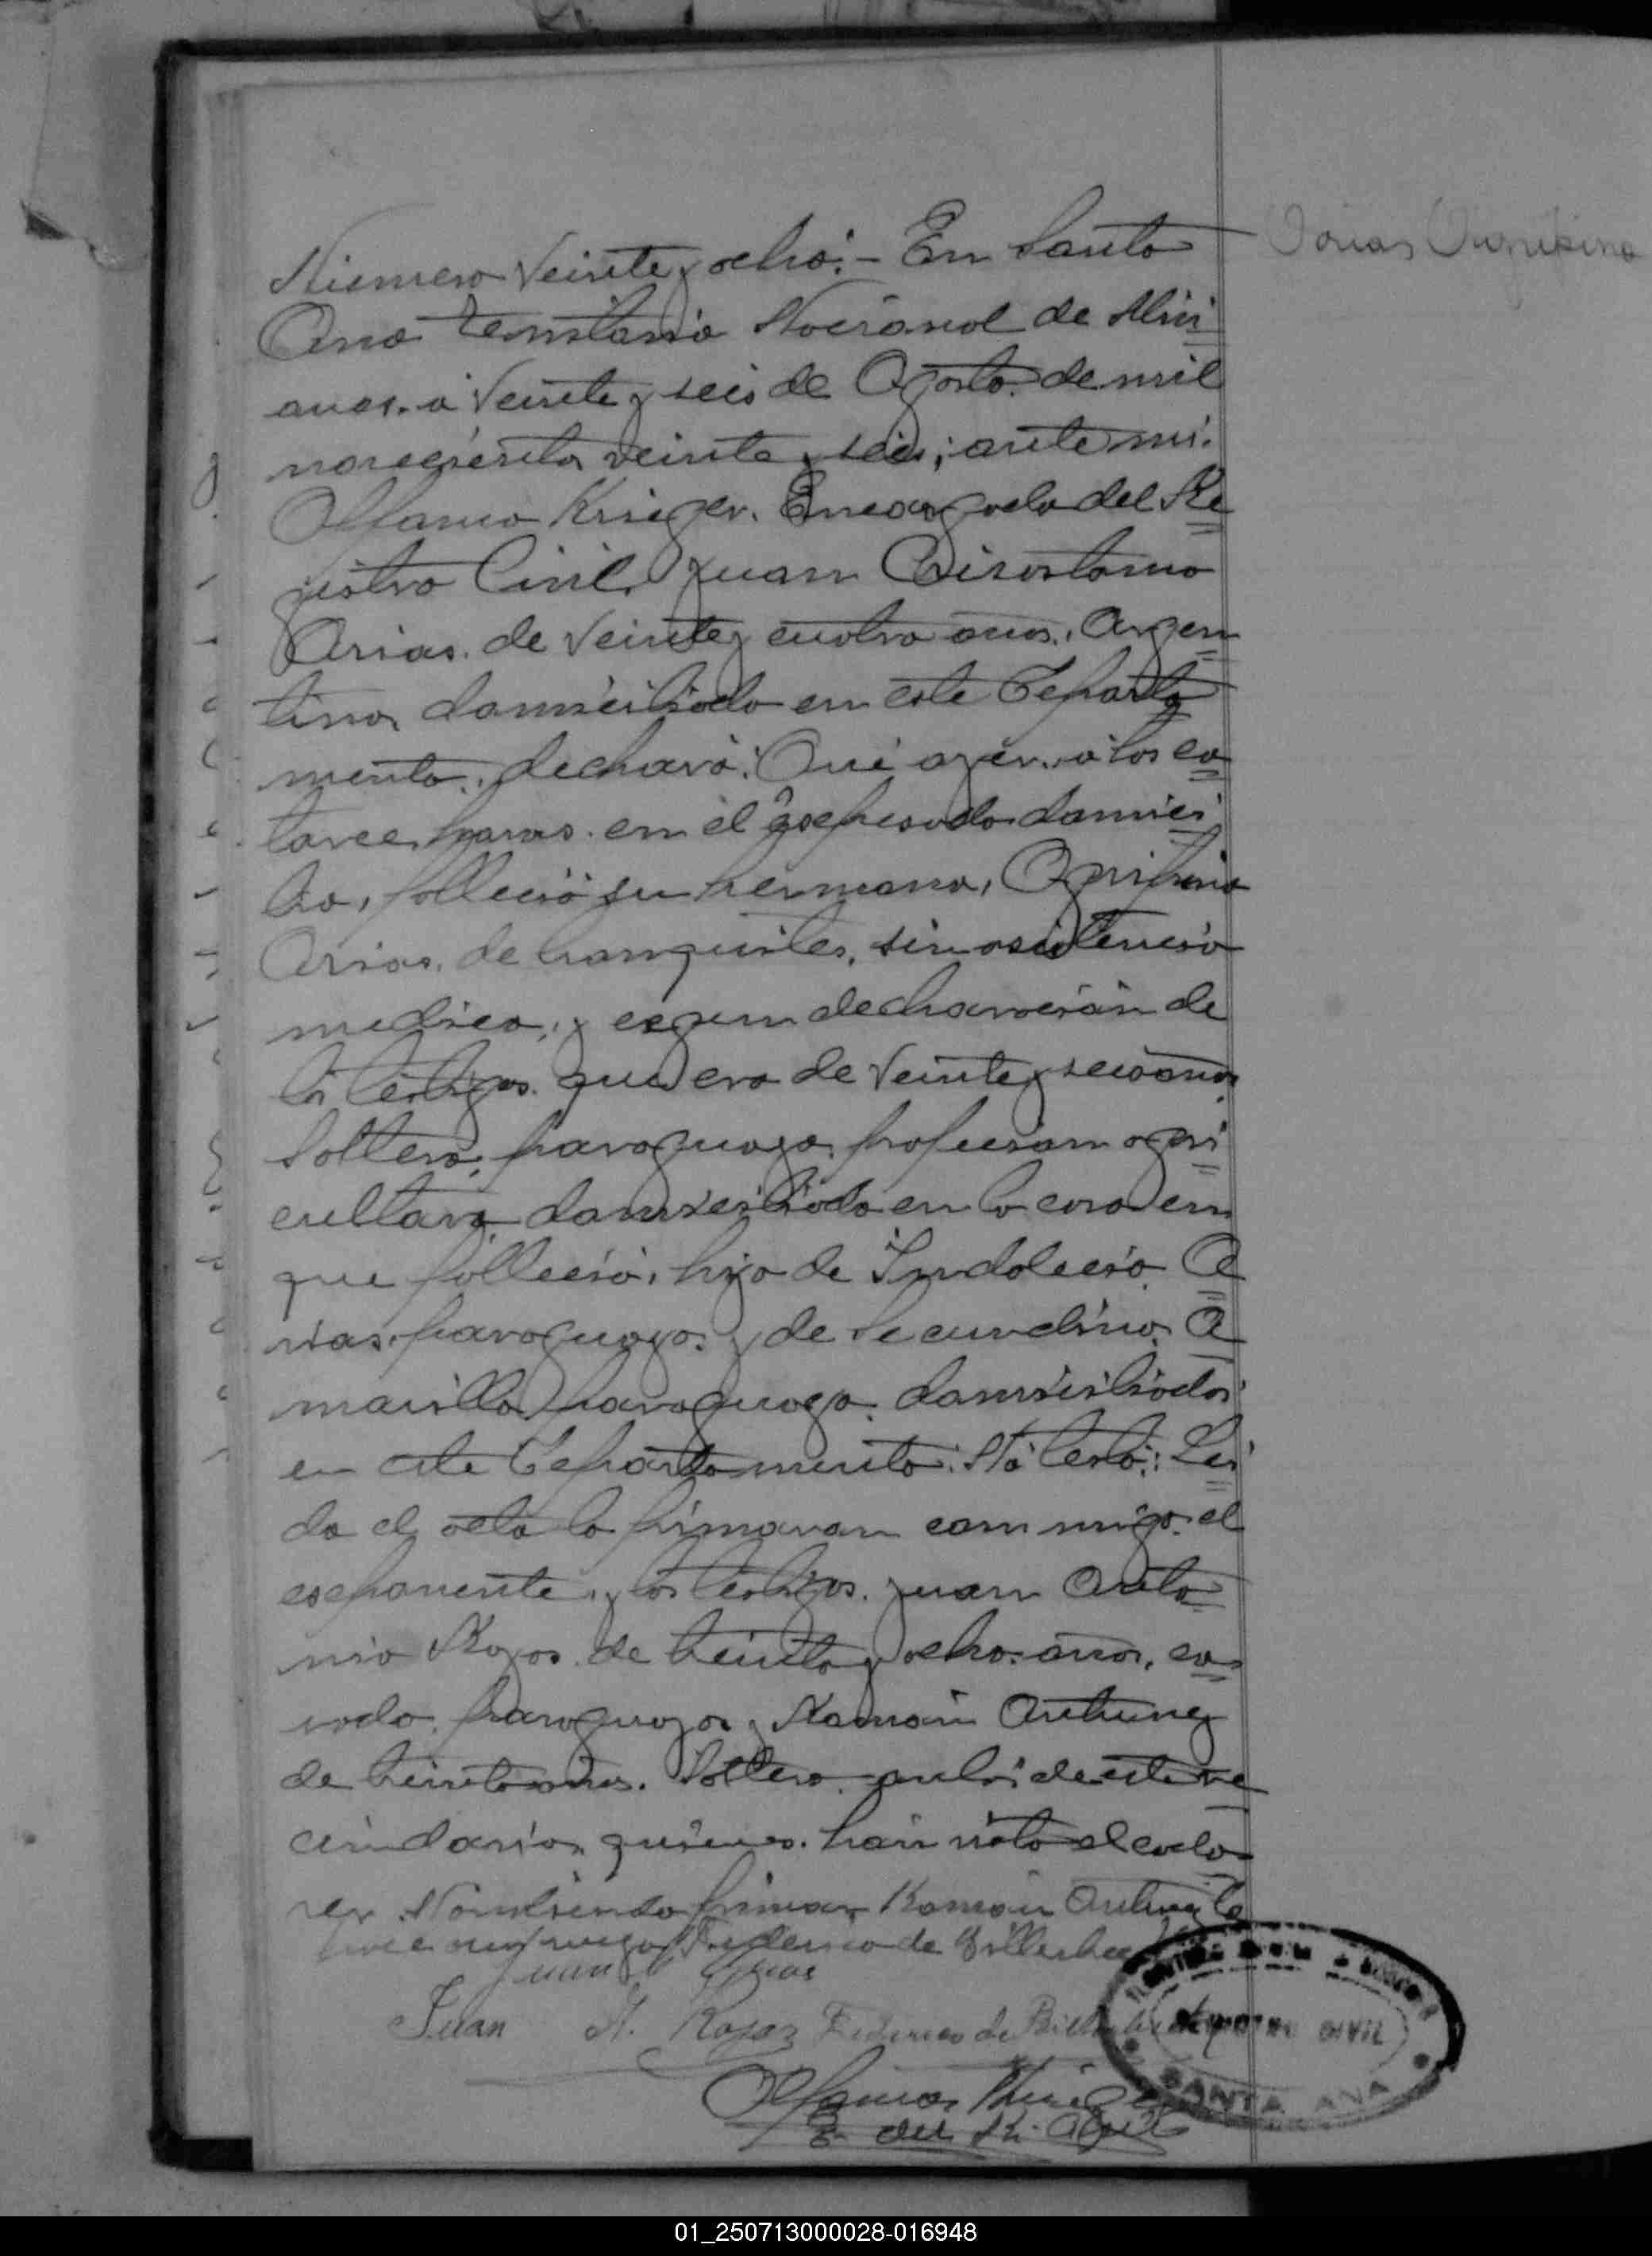 Arias Agripino
Número Veinte y ocho:- En Santa
Ana Territorio Nacional de Misi
ones. á Veinte y seis de Agosto de mil
novecientos veinte y seis; ante mi.
Krieger. Encargado del Re
gistro Civil, Juan Crisostomo
Arias. de Veinte y cuatro años, Argen
tino, domiciliado en este Departa
mento, declaró: Que ayer, a las ca
torce horas. en el espresado domici
lio, falleció su hermano, Agripino
Arias, de sin asistencia
medica, y segun declaración de
los testigos. que era de Veinte y seis años
Soltero, paraguayo, profesion agri
cultor, domiciliado en la casa en
que falleció, hijo de Indalecio A
rias, paraguayo. y de Secundina A
marilla, paraguaya, domiciliados
en este Departamento. No testó: Lei
da el acta la firmaron con migo el
esponente, y los testigos. Juan Anto
nio Rojas de treinta y ocho años, ca
sado, paraguayo, y Ramón
de treinta años. Soltero, ambos de este ve
cindario, quienes. han visto el cada
ver. No sabiendo firmar Ramón lo
hace a su ruego Federico de
Juan C Arias
Juan A. Rojas Federico de
Krieger
E. del R. Civil
REGISTRO CIVIL
SANTA ANA
01_250713000028-016948